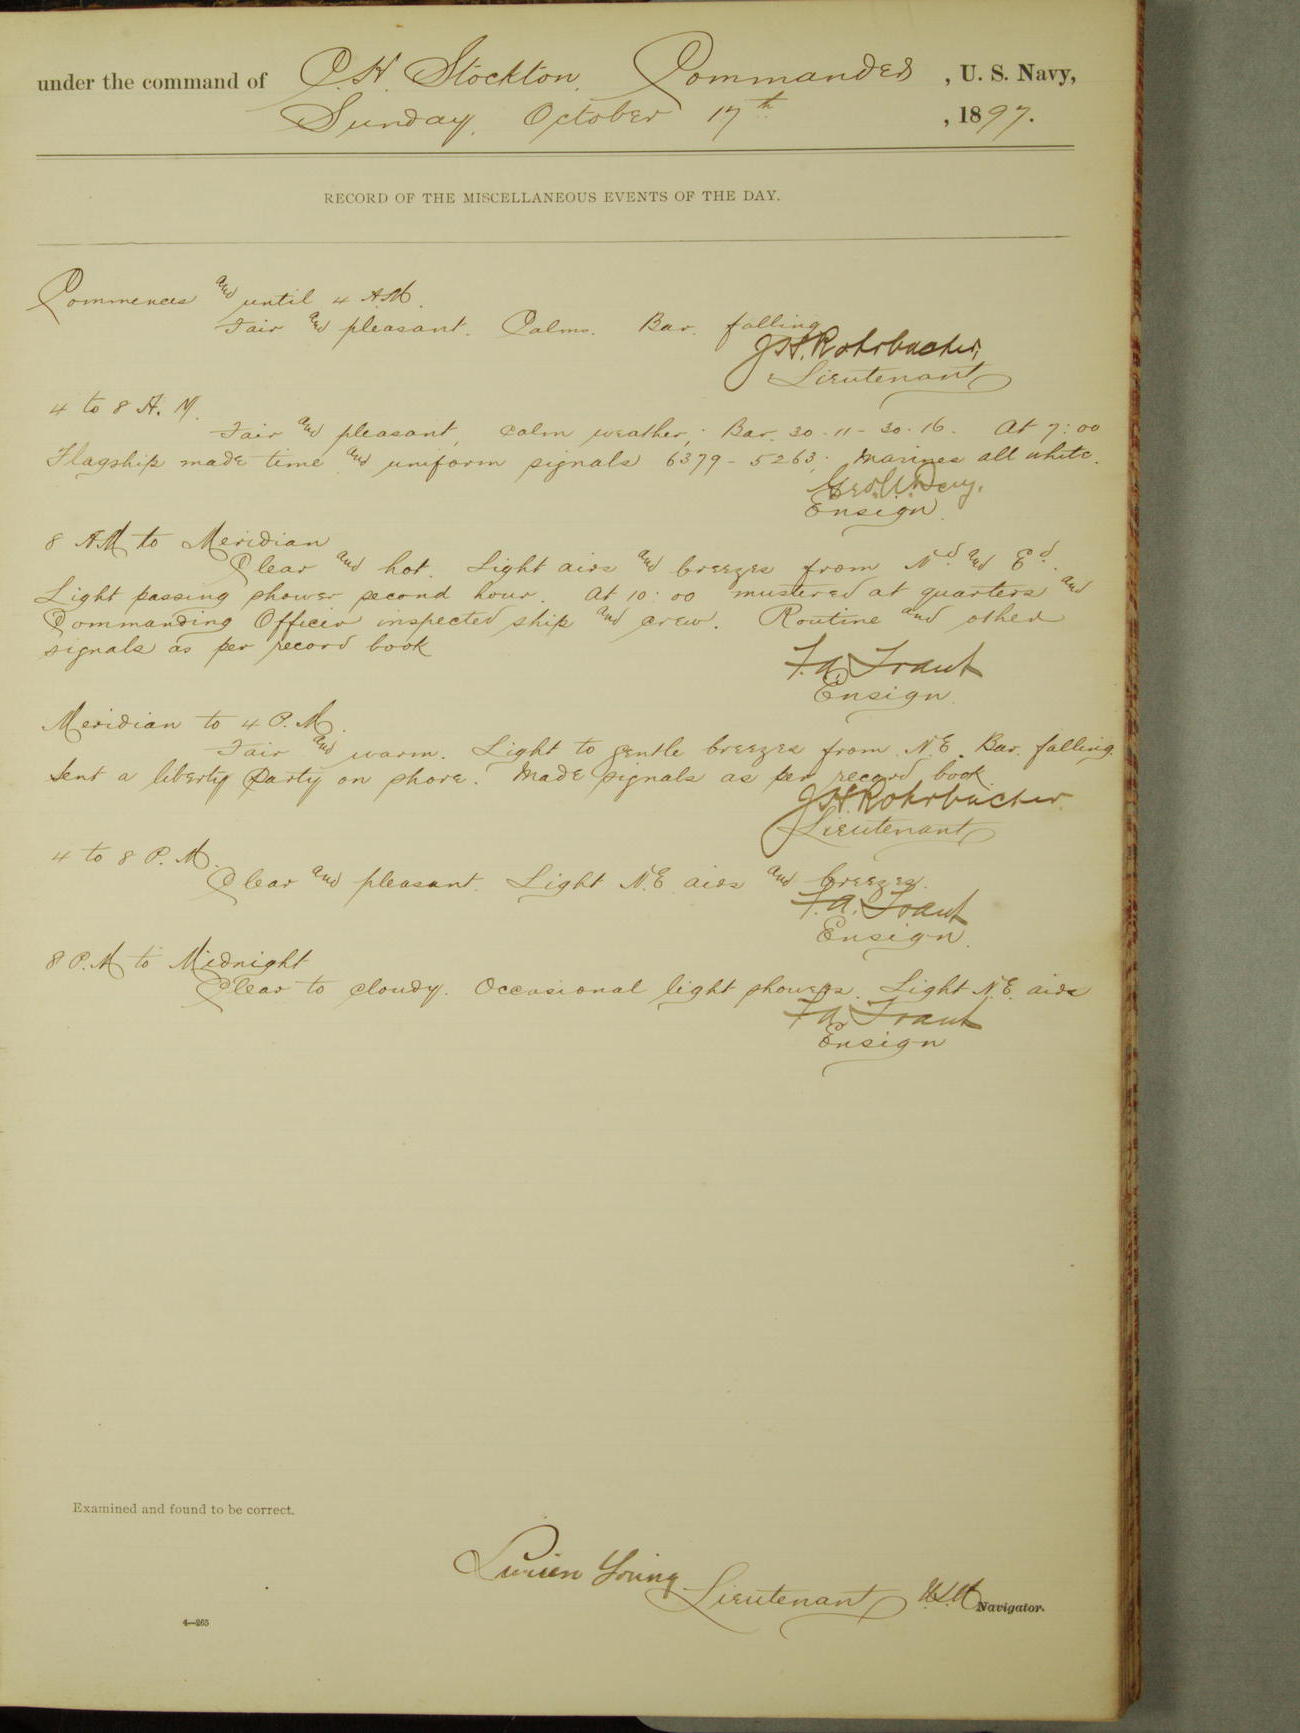 under the command of C. H. Stockton, Commander, U. S. Navy,
Sunday, October 17th, 1897.
RECORD OF THE MISCELLANEOUS EVENTS OF THE DAY.
Commences and until 4 A.M.
Fair and pleasant. Calms. Bar. falling
J.H. Rohrbacher,
Lieutenant
4 to 8 A. M.
Fair and pleasant, calm weather; Bar. 30.11 - 30.16. At 7:00
Flagship made time and uniform signals 6379 - 5263; Marines all white.
Ensign
8 A.M. to Meridian
Clear and hot. Light airs and breezes from Nd. and Ed.
Light passing shower second hour. At 10:00 mustered at quarters and
Commanding Officer inspected ship and crew. Routine and other
signals as per record book
F. A. Traut
Ensign.
Meridian to 4 P. M.
Fair and warm. Light to gentle breezes from N.E. Bar. falling.
Sent a liberty party on shore. Made signals as per record book.
J.H. Rohrbacher.
Lieutenant
4 to 8 P. M.
Clear and pleasant. Light N.E. airs and breezes.
F. A. Traut
Ensign.
8 P.M. to Midnight
Clear to cloudy. Occasional light showers. Light N.E. airs
F. A. Traut
Ensign
Examined and found to be correct.
Lucien Young
Lieutenant U.S.N. Navigator.
4—265